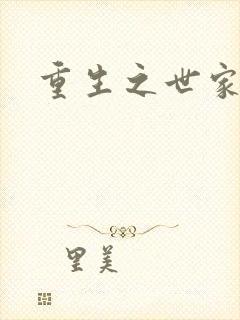 重生之世家
里美